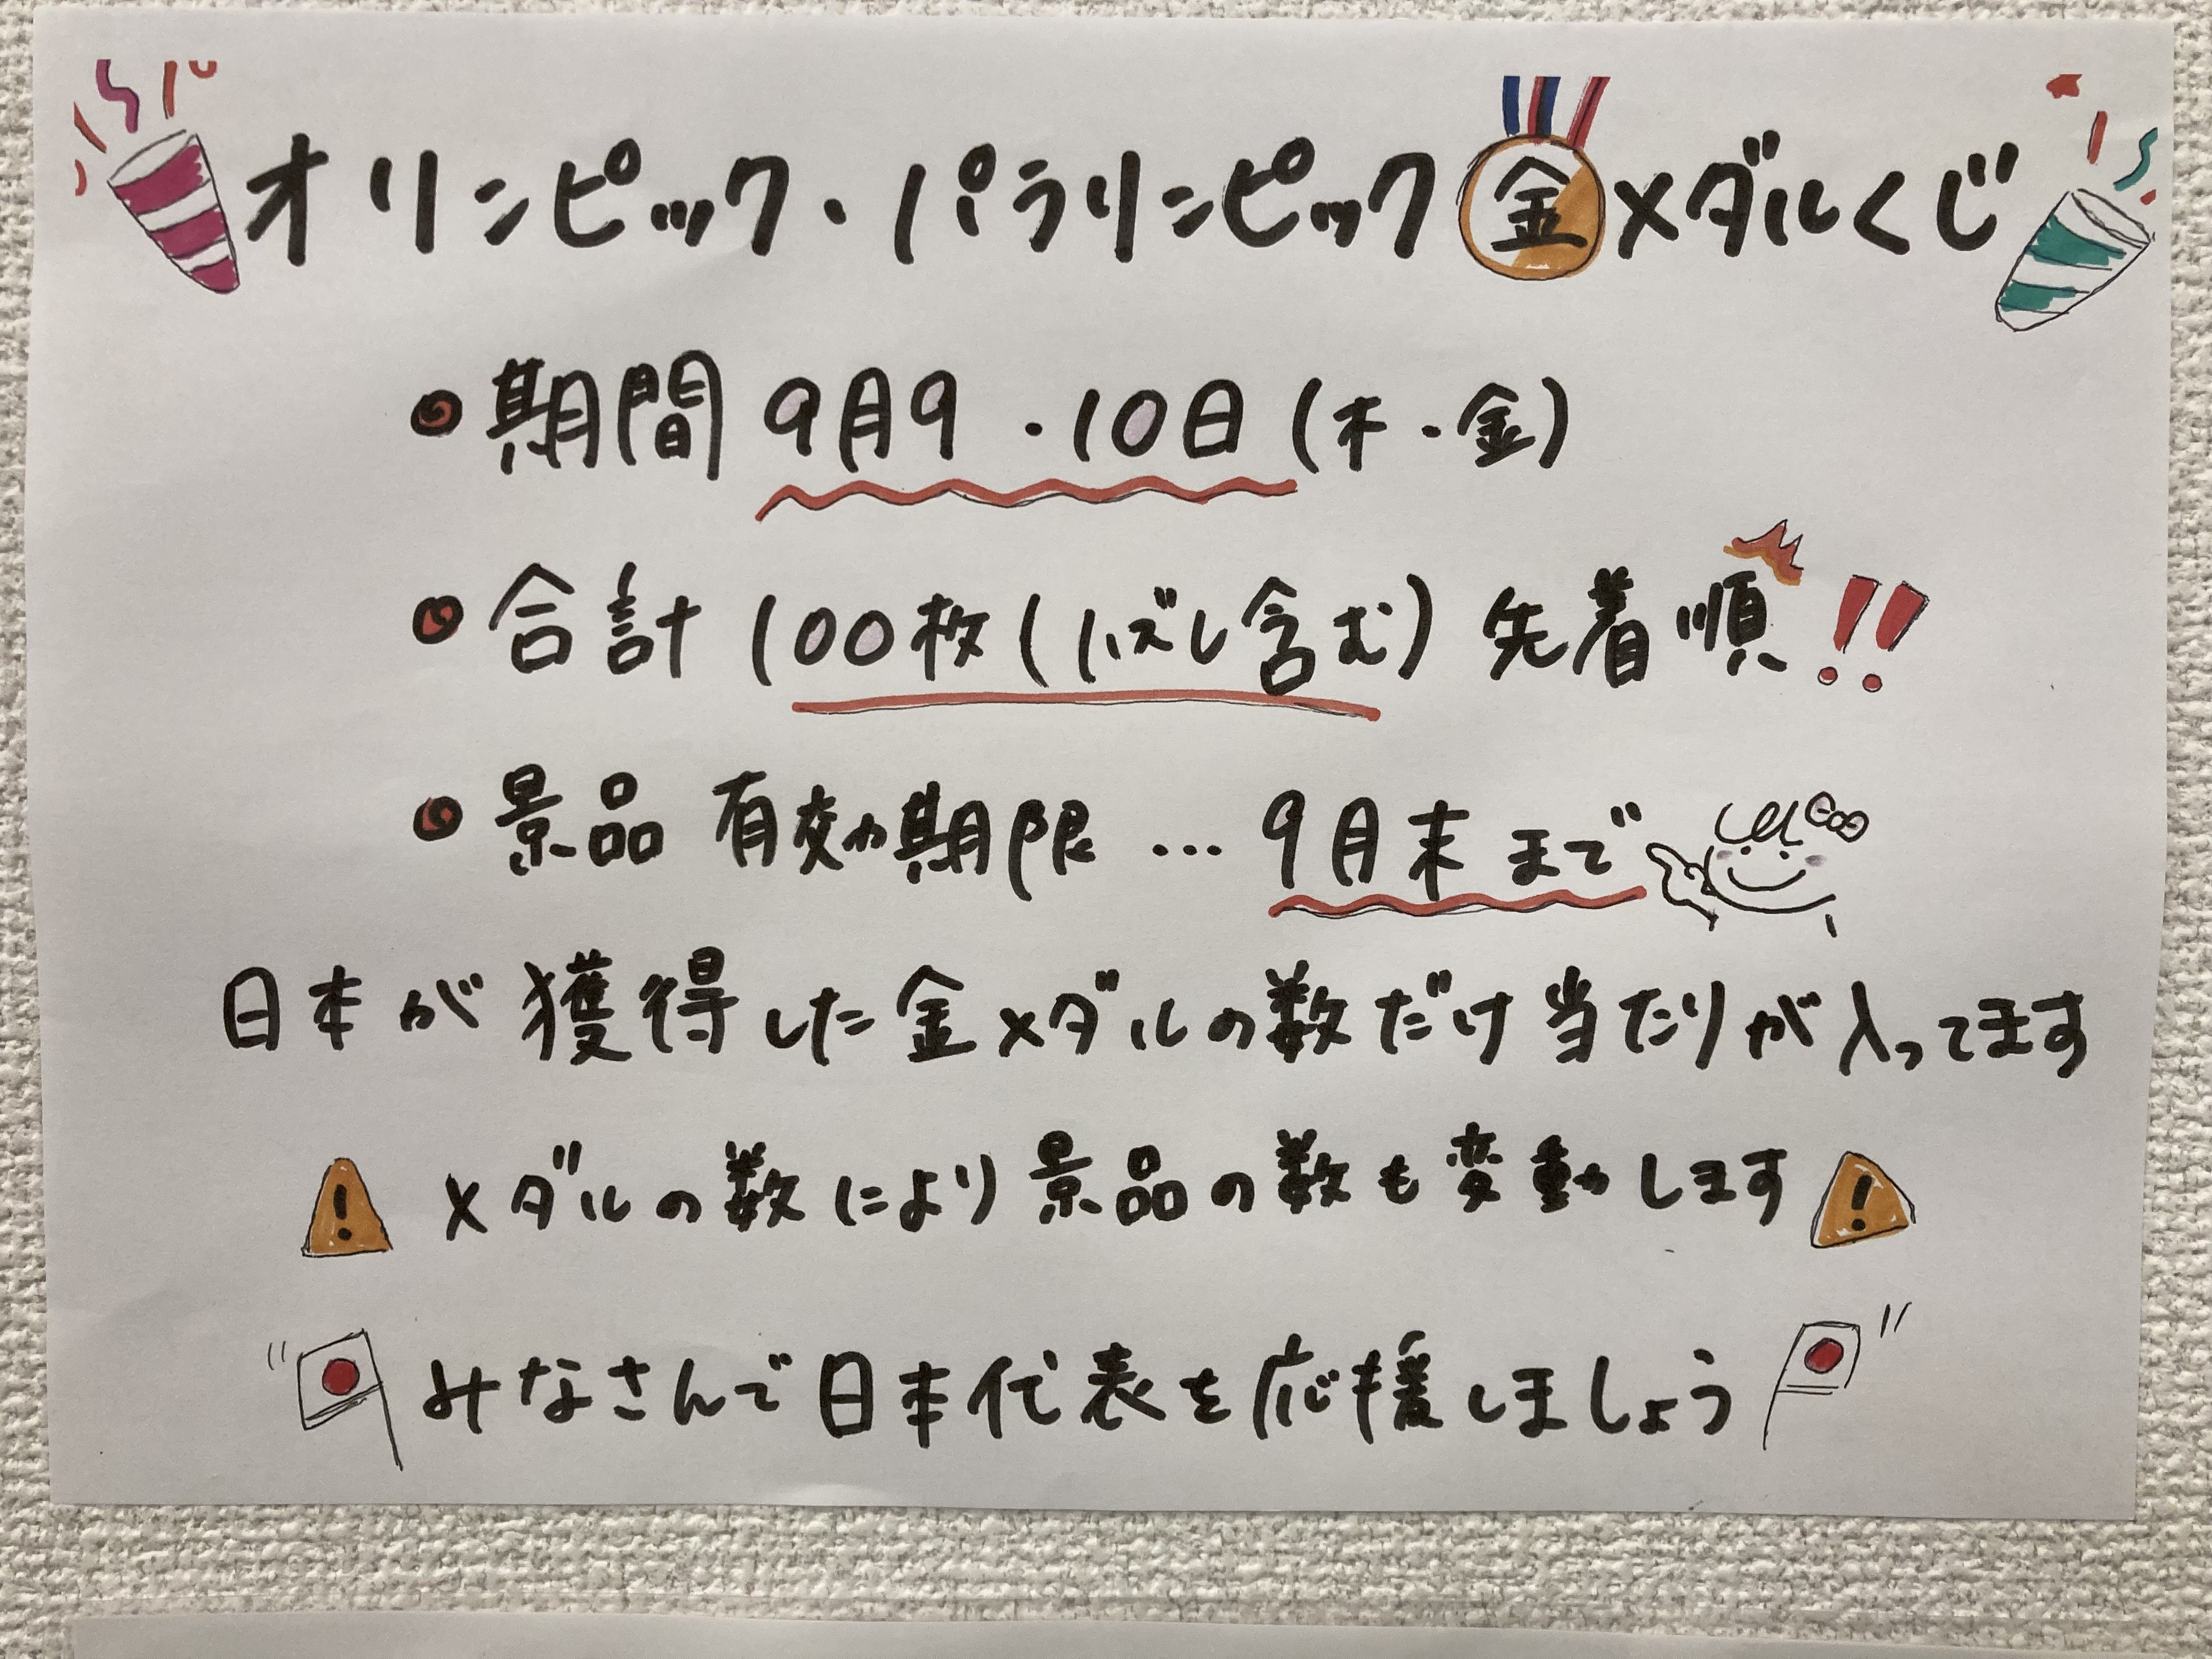 オリンピック・パラリンピック金メダルくじ
期間 9月9・10日(木・金)
合計 100枚(ハズレ含む) 先着順!!
景品 有効期限…9月末まで
日本が獲得した金メダルの数だけ当たりが入ってます
! メダルの数により景品の数も変動します !
みなさんで日本代表を応援しましょう